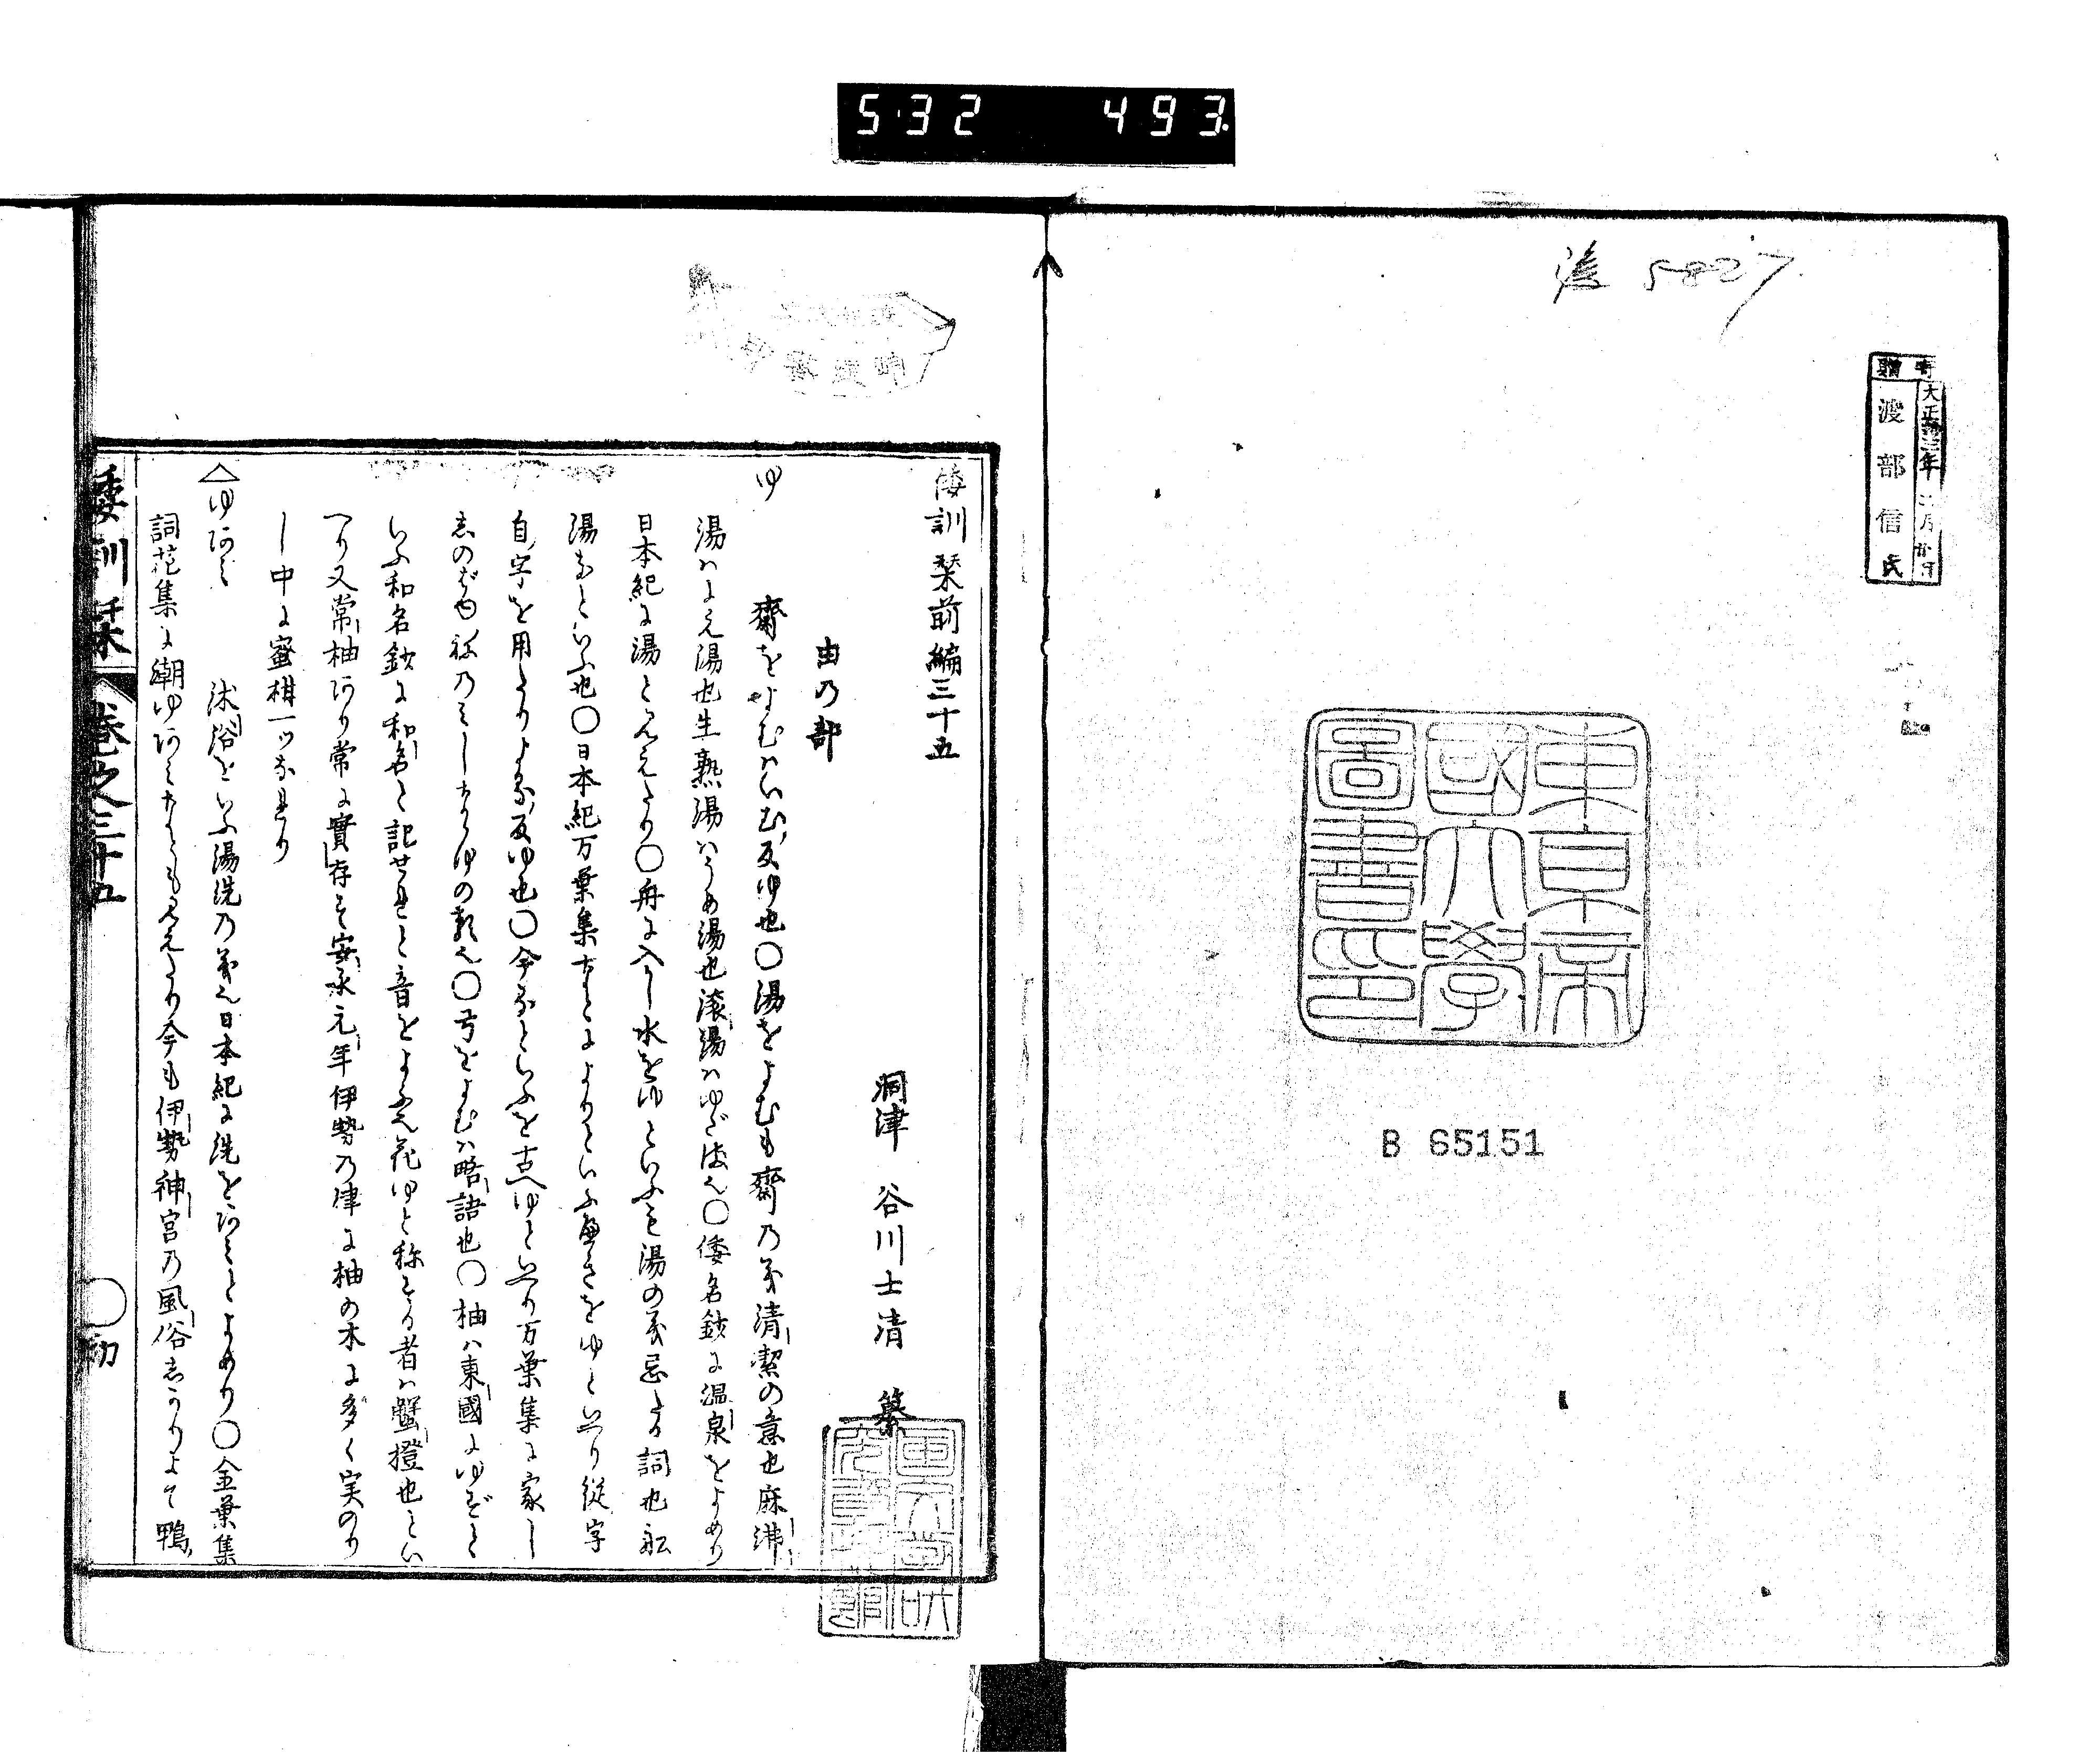 5.32 493.
5827
寄贈
大正
年
渡部信氏
東京帝
國大學
圖書印
B 65151
倭訓栞前編三十五
洞津 谷川士清 纂
由乃部
ゆ 齋をよむハいむ反ゆ也〇湯をよむも齋乃義清潔の意也麻沸
湯ハにえ湯也生熟湯ハうめ湯也滾湯ハゆだま也〇倭名鈔に温泉をよめり
日本紀に湯とみえたり〇舟に入りし水をゆといふも湯の義忌たる詞也
湯なといふ也〇日本紀万葉集なとによりといふ助語をゆといへり從字
自字を用たりよな反ゆ也〇今なといふを古へゆといへり万葉集に家し
乃みしなくゆの類也〇弓をよむハ略語也〇柚ハ東國にゆずと
いふ和名鈔に和名と記せれと音をよふ也花ゆと称する者ハ蟹橙也とい
へり又常柚あり常に實存す安永元年伊勢乃津に柚の木に多く実のり
し中に蜜柑一ツなれり
△ゆあみ 沐浴をいふ湯洗乃義也日本紀に洗をあみとよめり〇金葉集
詞花集に潮ゆあみなとも見えたり今も伊勢神宮乃風俗しかりよて鴨
倭訓栞 巻之三十五 〇初